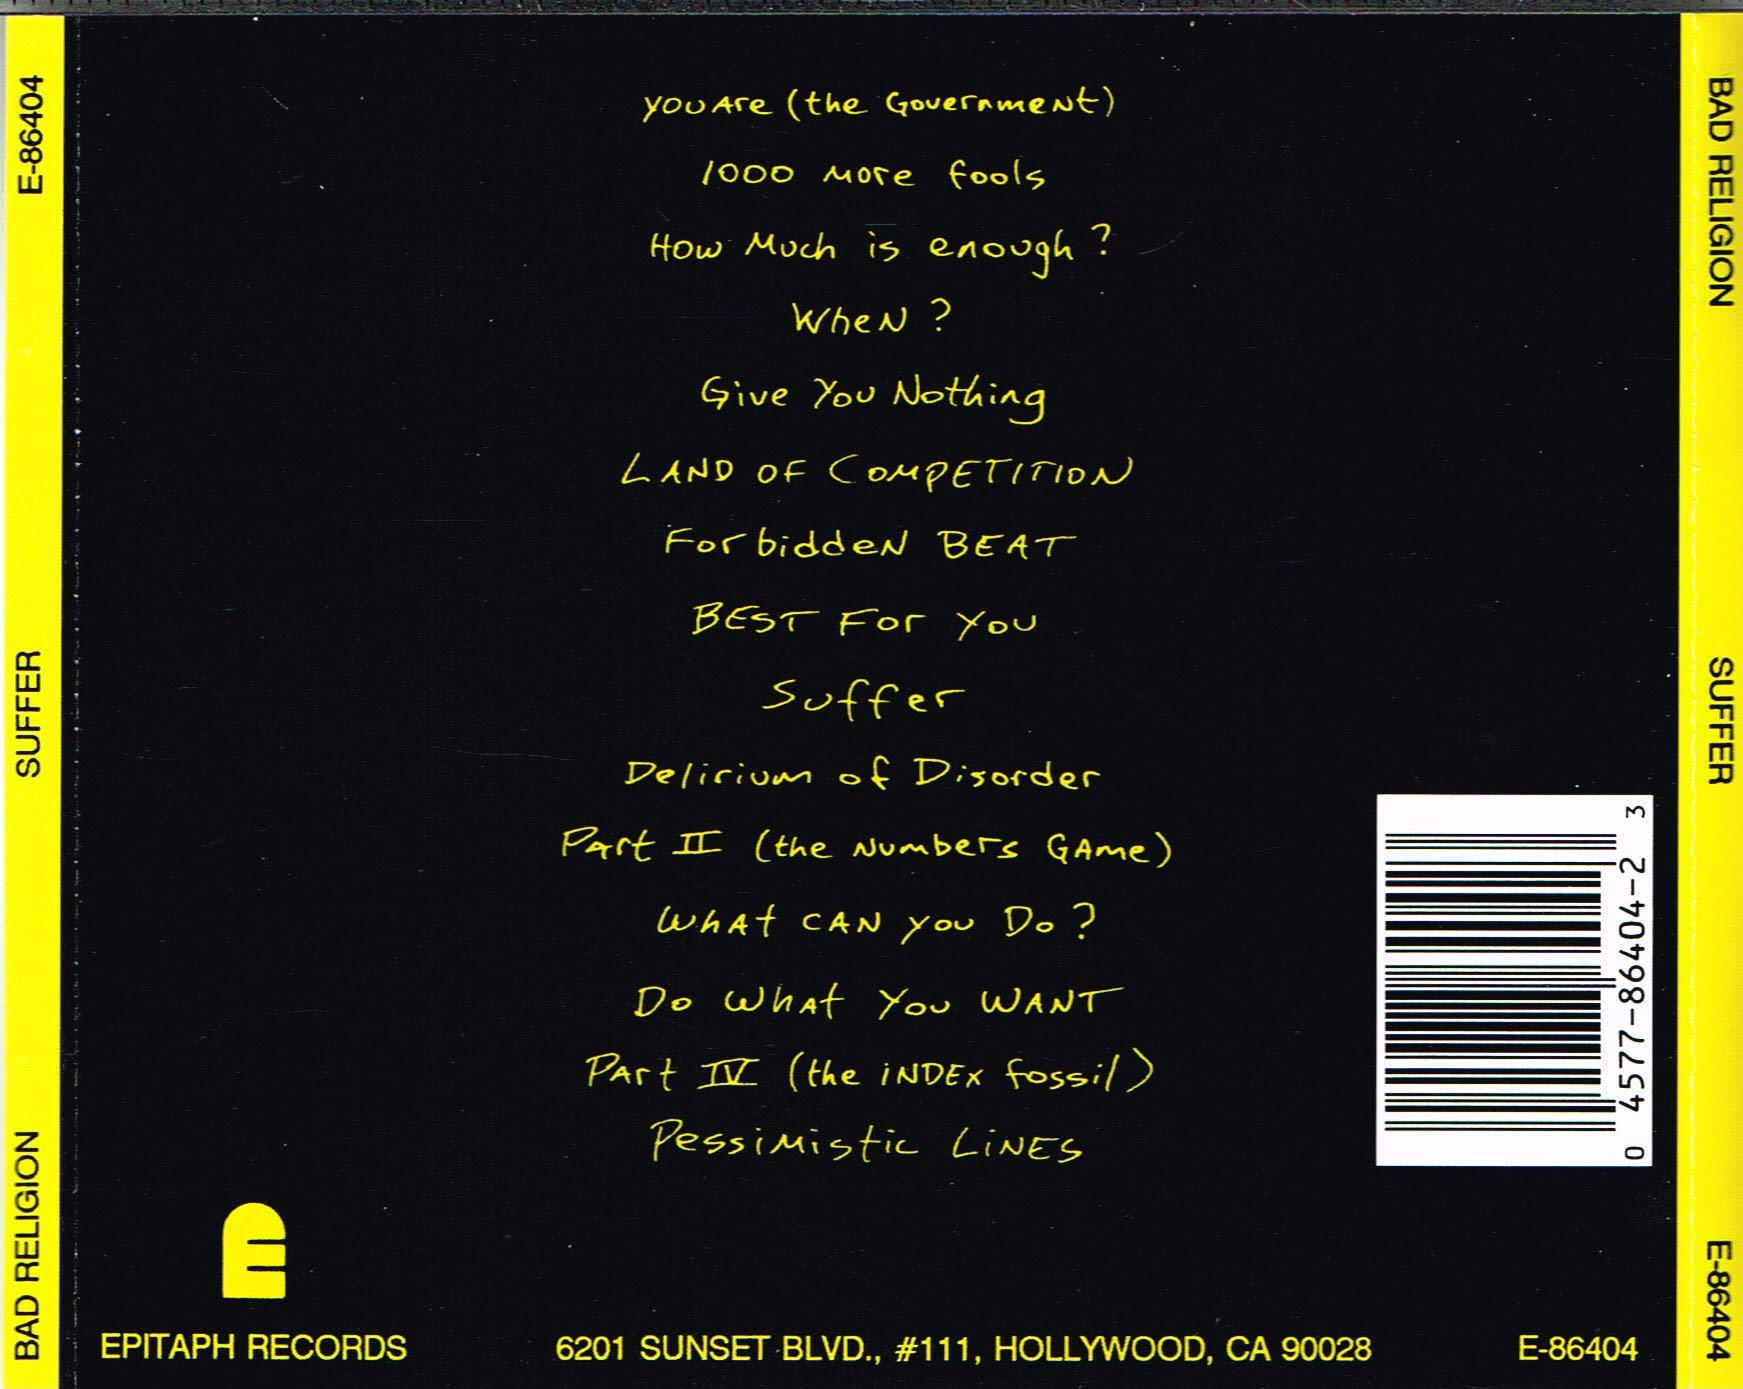 E-86404
SUFFER
BAD RELIGION
YOU ARE (the Government)
1000 MOre fools
HOW MUch is enough?
WheN?
Give You Nothing
LAND OF COMPETITION
ForbiddeN BEAT
BEST FOr YOU
Suffer
Delirium of Disorder
PArt II (the NumbErs GAme)
WhAt CAN you Do?
Do WhAt You WANT
PArt IV (the iNDEx fossil)
PessiMistic LiNES
E
EPITAPH RECORDS
6201 SUNSET BLVD., #111, HOLLYWOOD, CA 90028
E-86404
0 4577-86404-2 3
BAD RELIGION
SUFFER
E-86404